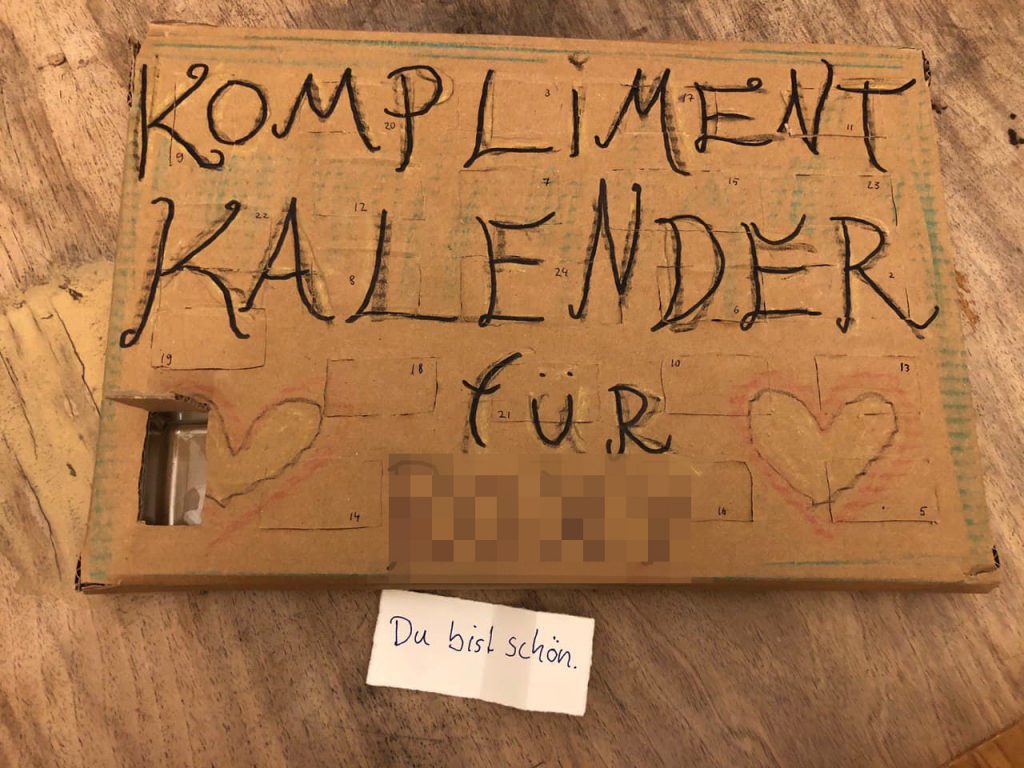 KOMPLIMENT
3
17
20
11
9
KALENDER
7
15
23
22
12
8
24
2
6
19
18
10
13
für
21
14
16
5
Du bist schön.